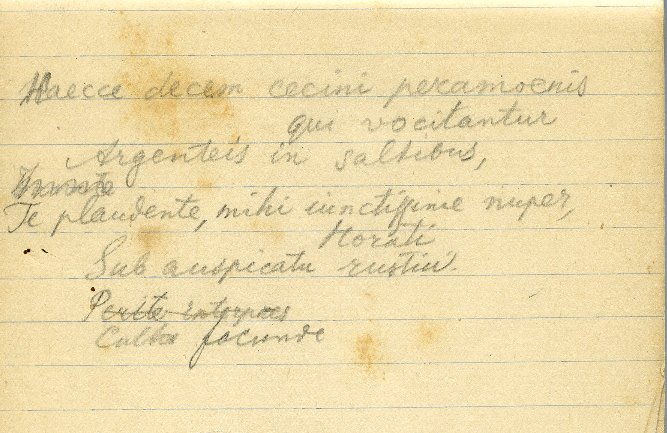 Haecce decem cecini peramoenis
qui vocitantur
Argenteis in saltibus,
Te plaudente, mihi iunctissime nuper,
Horati
Sub auspicatu rustici.
Perite interpres
Culte facunde